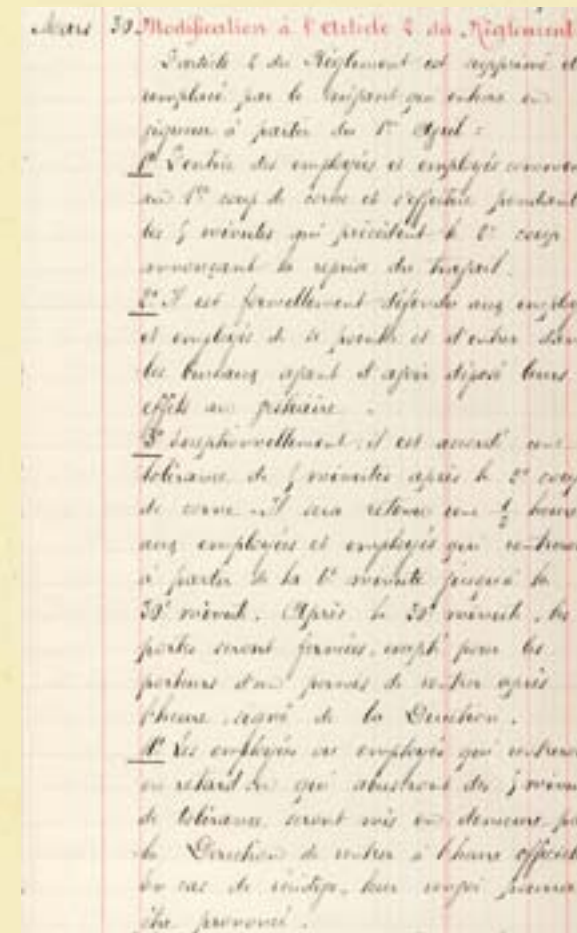 Mars 30 Modification à l'Article 2 du Règlement
L'article 2 du Règlement est supprimé et
remplacé par le suivant qui entrera en
vigueur à partir du 1er Avril :
1° L'entrée des employées et employés commence
au 1er coup de corne et s'effectue pendant
les 5 minutes qui précèdent le 2e coup
annonçant la reprise du travail.
2° Il est formellement défendu aux employées
et employés de se rendre et d'entrer dans
les bureaux avant d'avoir déposé leurs
effets au vestiaire.
3° Exceptionnellement, il est accordé une
tolérance de 5 minutes après le 2e coup
de corne. Il sera retenu une 1/2 heure
aux employées et employés qui rentreront
à partir de la 6e minute jusqu'à la
30e minute. Après la 30e minute, les
portes seront fermées, except' pour les
porteurs d'un permis de rentrer après
l'heure, signé de la Direction.
4° Les employées ou employés qui rentreront
en retard ou qui abuseront des 5 minutes
de tolérance, seront mis en demeure par
la Direction de rentrer à l'heure officielle
En cas de récidive, leur renvoi pourra
être prononcé.